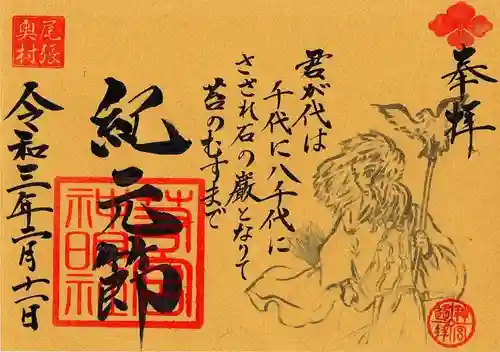 奉拝
君が代は
千代に八千代に
さざれ石の巌となりて
苔のむすまで
紀元節
令和三年二月十一日
尾張
奥村
神明社